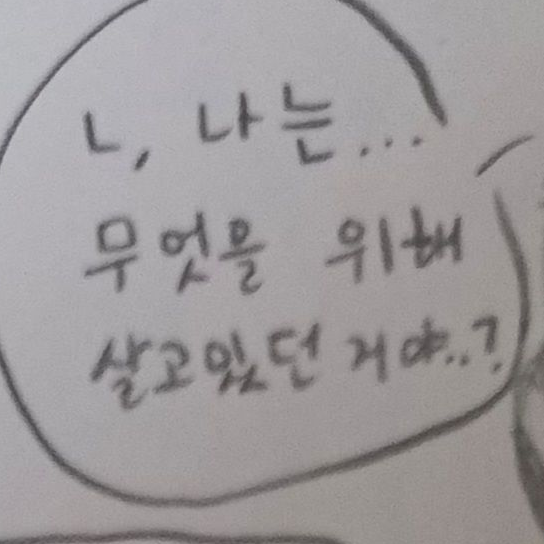 ㄴ, 나는...
무엇을 위해
살고있던 거야..?